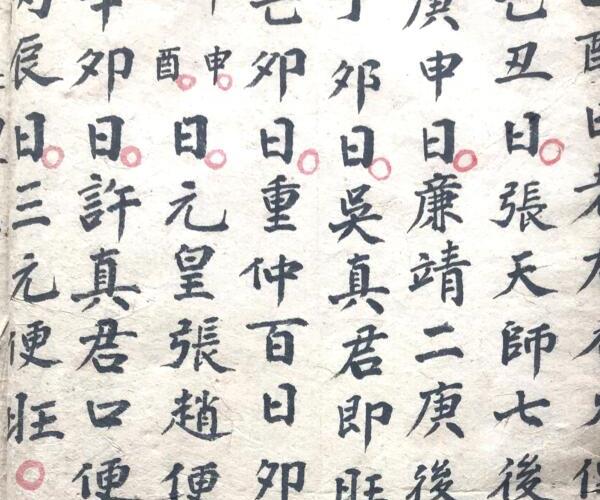 丑日張天師七後
庚申日廉靖二庚後
卯日吳真君即旺
卯日重仲百日卯
申酉日元皇張趙便
卯日許真君口便
辰日三元便旺